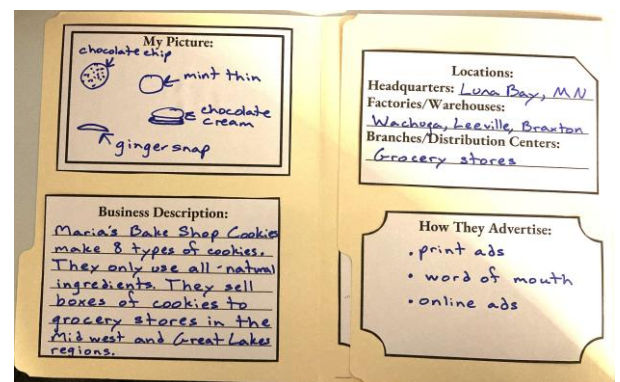 My Picture:
chocolate chip
mint thin
chocolate
cream
gingersnap
Business Description:
Maria's Bake Shop Cookies
make 8 types of cookies.
They only use all-natural
ingredients. They sell
boxes of cookies to
grocery stores in the
Midwest and Great Lakes
regions.
Locations:
Headquarters: Luna Bay, MN
Factories/Warehouses:
Wachuga, Leeville, Braxton
Branches/Distribution Centers:
Grocery stores
How They Advertise:
• print ads
• word of mouth
• online ads